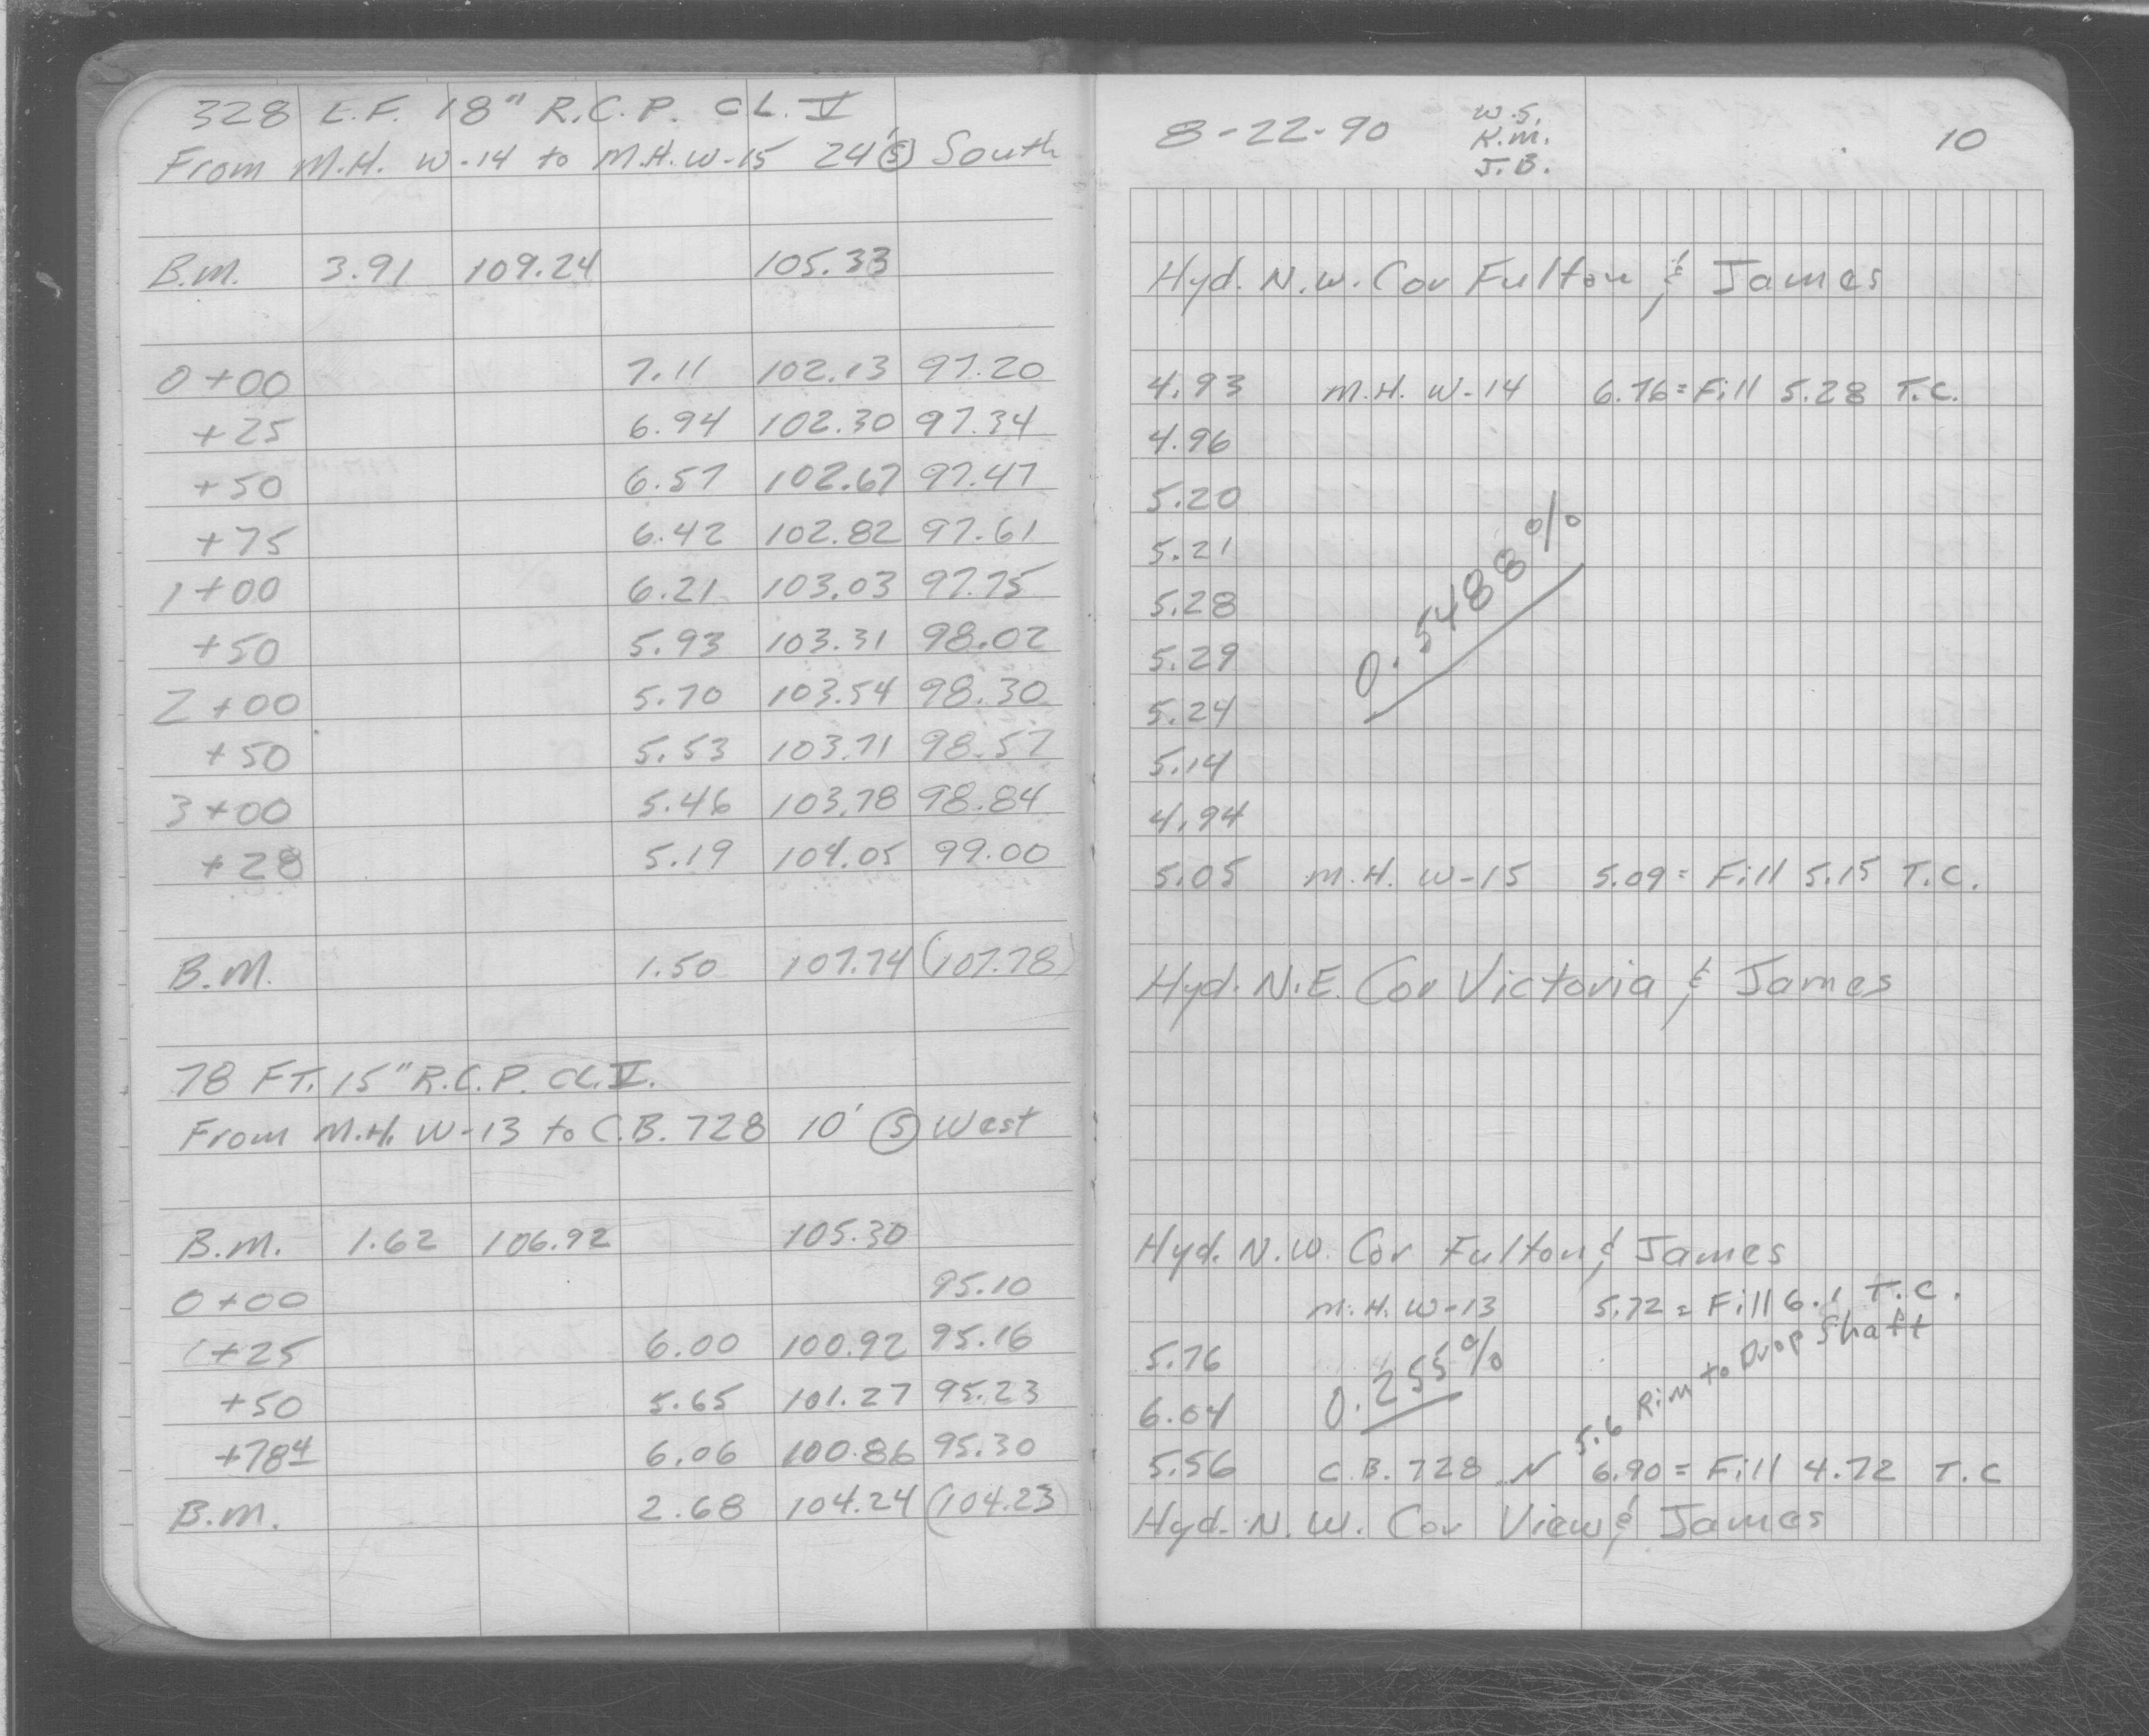 328 L.F. 18" R.C.P. CL. V
From M.H. W-14 to M.H. W-15 24' (S) South
B.M. 3.91 109.24 105.33
0+00 7.11 102.13 97.20
+25 6.94 102.30 97.34
+50 6.57 102.67 97.47
+75 6.42 102.82 97.61
1+00 6.21 103.03 97.75
+50 5.93 103.31 98.02
2+00 5.70 103.54 98.30
+50 5.53 103.71 98.57
3+00 5.46 103.78 98.84
+28 5.19 104.05 99.00
B.M. 1.50 107.74 (107.78)
78 FT. 15" R.C.P. CL. V.
From M.H. W-13 to C.B. 728 10' (S) West
B.M. 1.62 106.92 105.30
0+00 95.10
+25 6.00 100.92 95.16
+50 5.65 101.27 95.23
+784 6.06 100.86 95.30
B.M. 2.68 104.24 (104.23)
8-22-90
W.S.
K.M.
J.B.
10
Hyd. N.W. Cor Fulton & James
4.93 M.H. W-14 6.76 = Fill 5.28 T.C.
4.96
5.20
5.21
5.28
5.29
5.24
5.14
4.94
0.5488%
5.05 M.H. W-15 5.09 = Fill 5.15 T.C.
Hyd. N.E. Cor Victoria & James
Hyd. N.W. Cor Fulton & James
M.H. W-13 5.72 = Fill 6.1 T.C.
5.76
0.255%
6.04
5.6 Rim to Drop Shaft
5.56 C.B. 728 N 6.90 = Fill 4.72 T.C
Hyd. N.W. Cor View & James